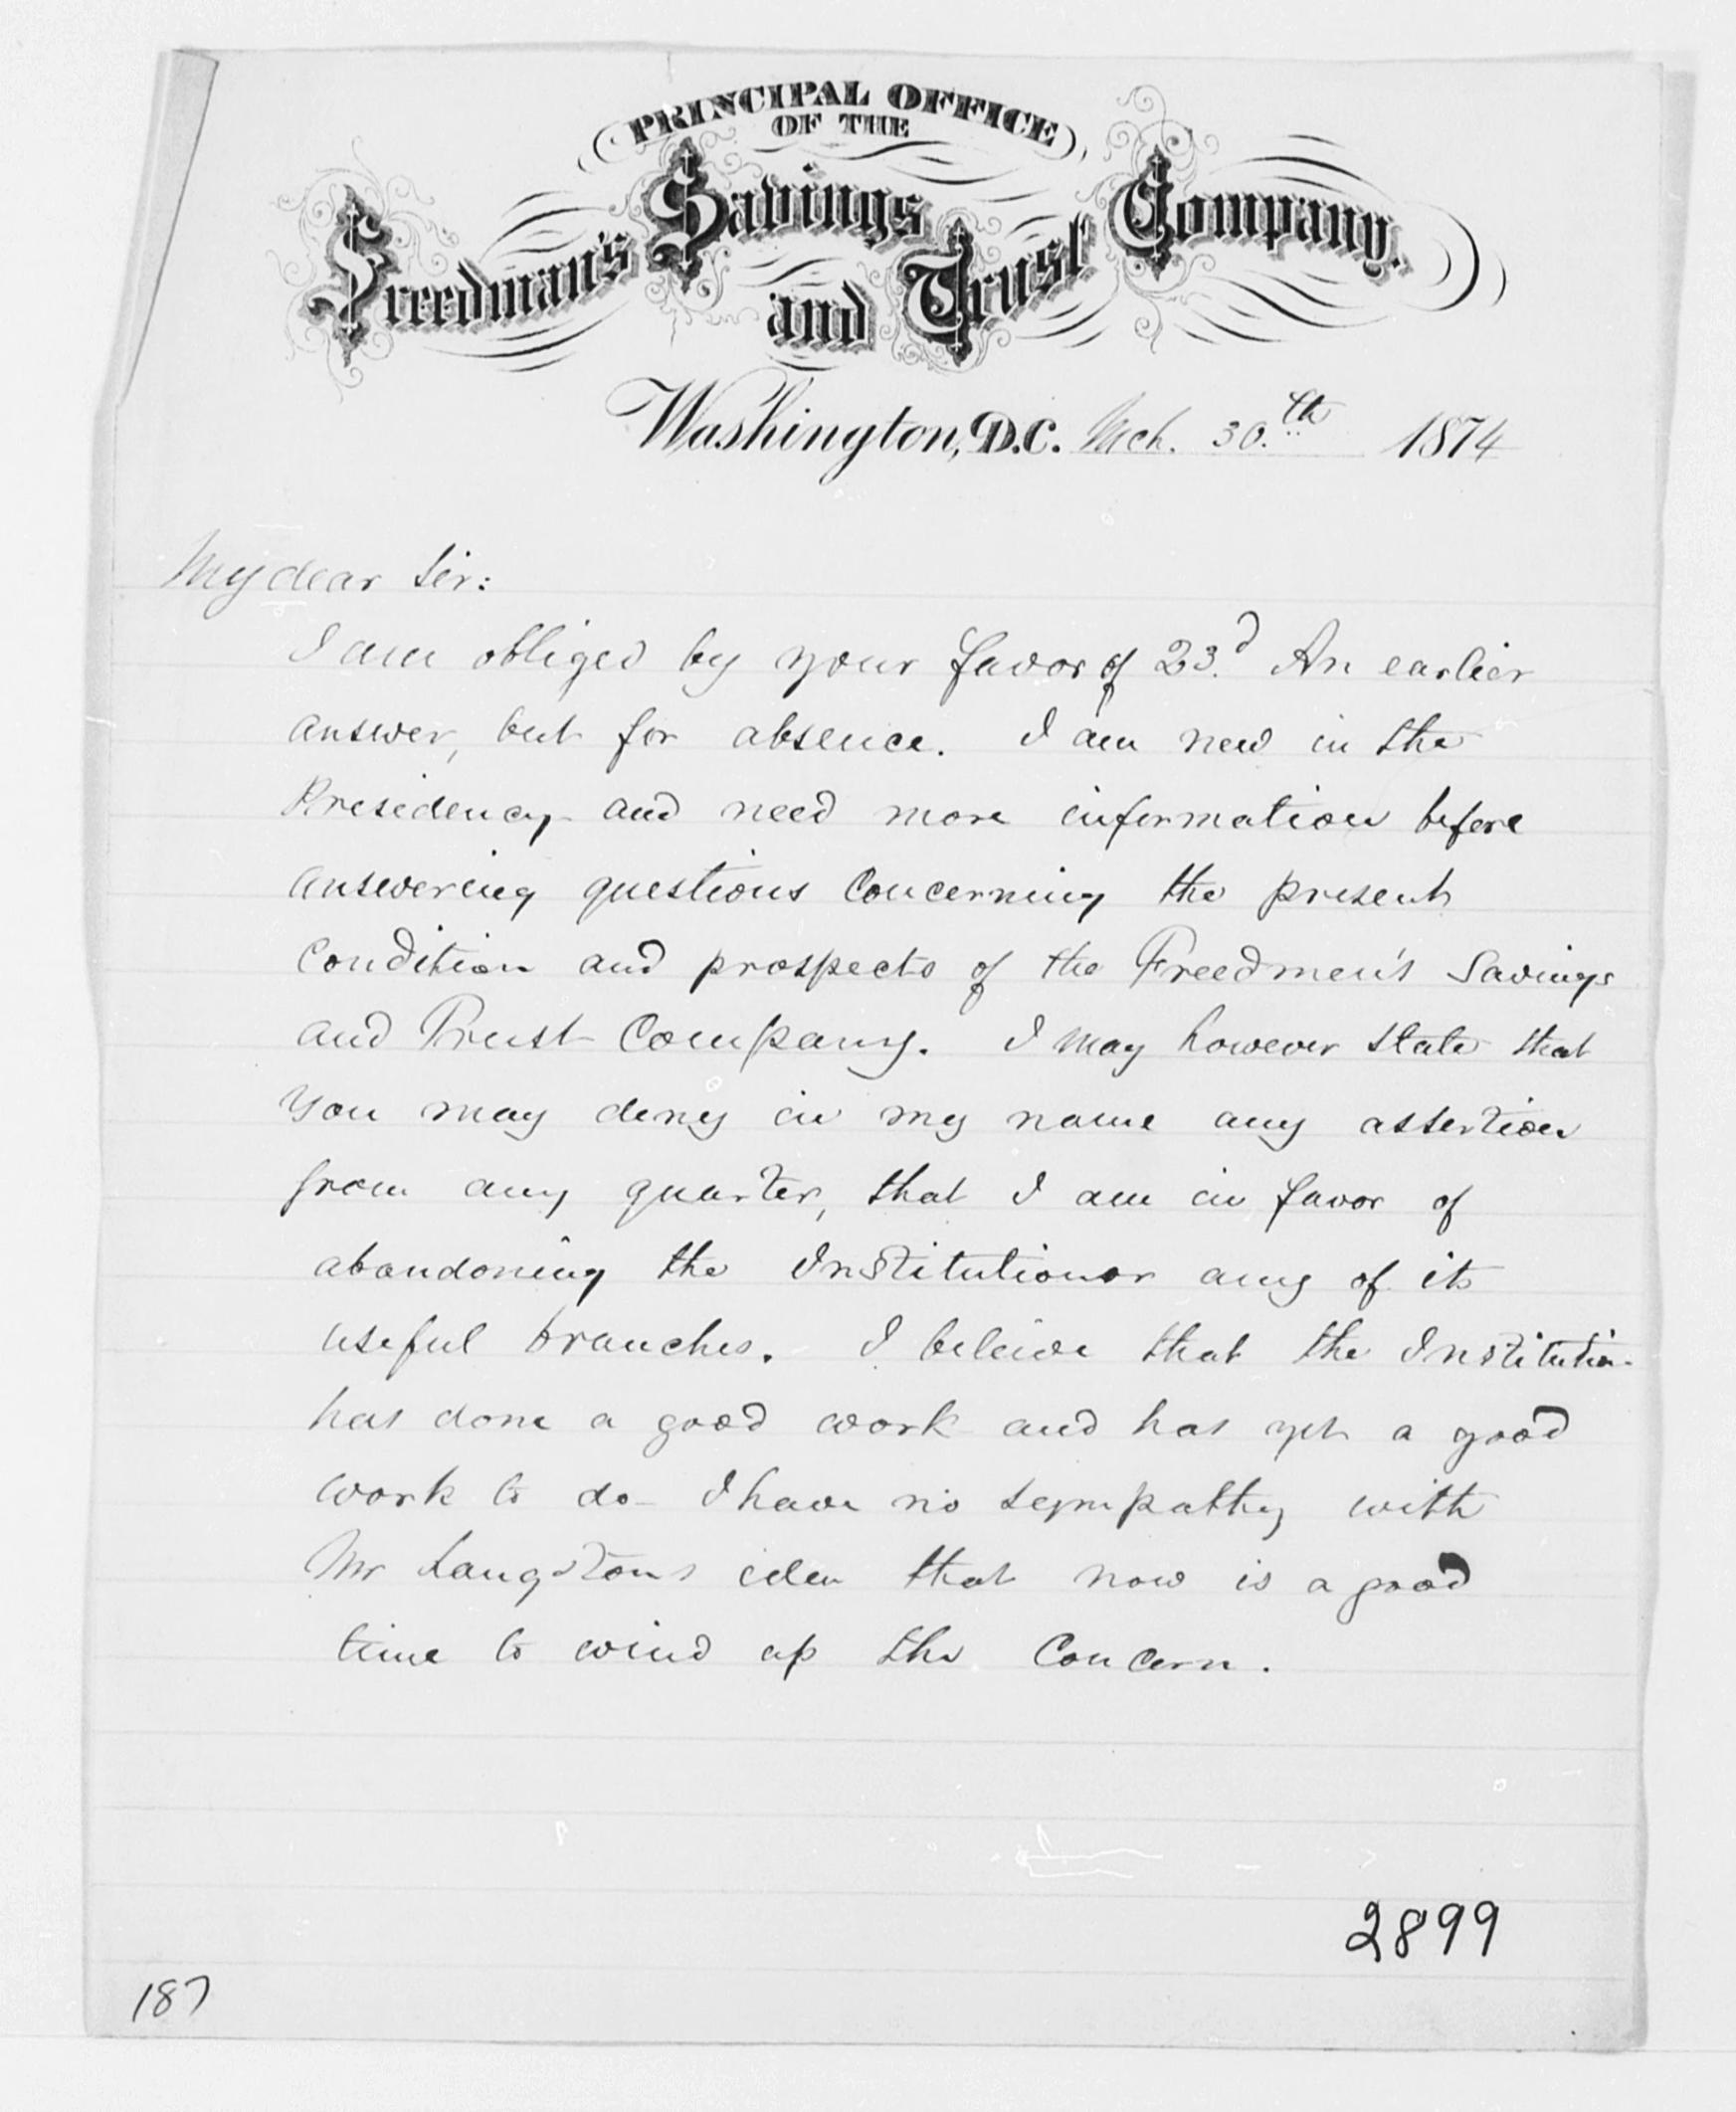 PRINCIPAL OFFICE
OF THE
Freedman's Savings and Trust Company.
Washington, D.C. Mch. 30.th 1874
My dear Sir:
I am obliged by your favor of 23.d An earlier
answer, but for absence. I am new in the
Presidency and need more information before
answering questions concerning the present
condition and prospects of the Freedmen's Savings
and Trust Company. I may however state that
you may deny in my name any assertion
from any quarter, that I am in favor of
abandoning the Institution or any of its
useful branches. I beleive that the Institution
has done a good work and has yet a good
work to do - I have no sympathy with
Mr Langstons idea that now is a good
time to wind up the concern.
2899
187